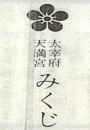 太宰府
天満宮
みくじ